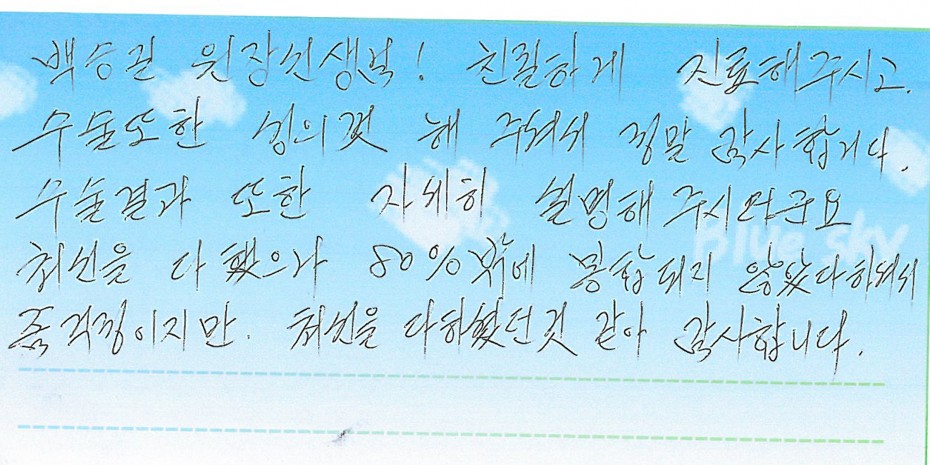 백승권 원장선생님! 친절하게 진료해주시고.
수술또한 성의껏 해 주셔서 정말 감사합니다.
수술결과 또한 자세히 설명해 주시더군요
최선을 다했으나 80%밖에 봉합되지 않았다하셔서
좀 걱정이지만. 최선을 다하셨던것 같아 감사합니다.
Blue sky